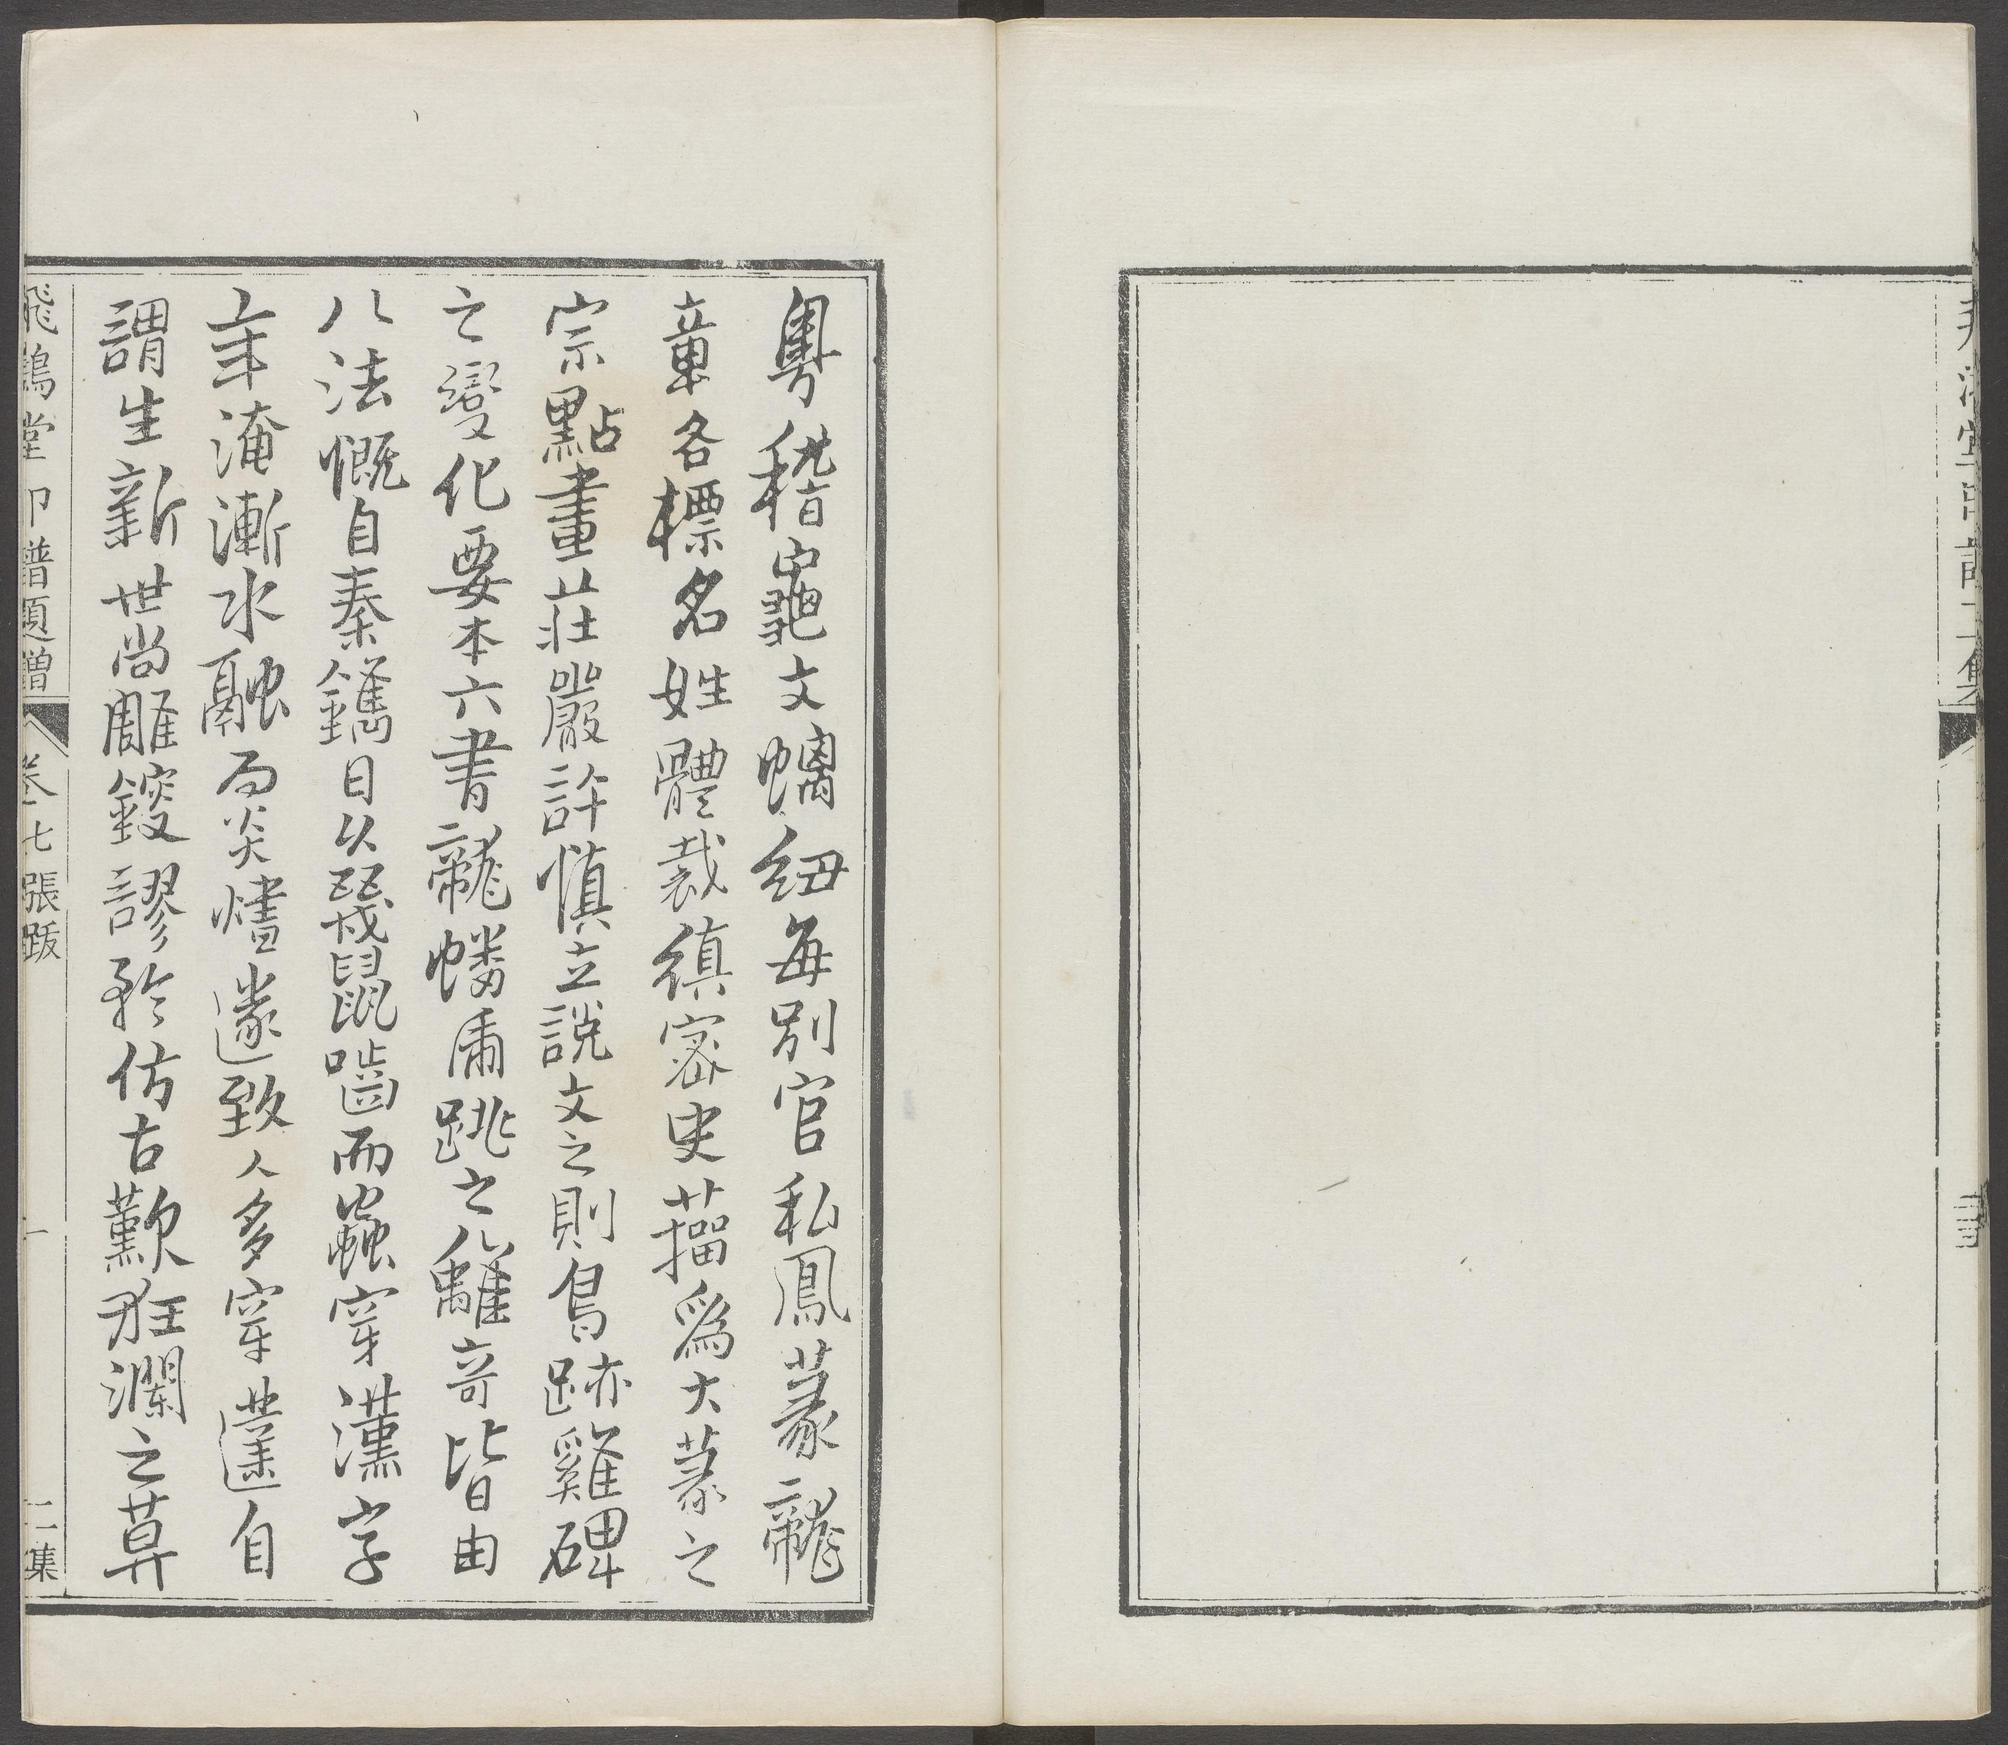 飛鴻堂印譜二集
粵稽龜文螭紐每別官私鳳篆龍
章各標名姓體裁縝密史籀爲大篆之
宗點畫莊嚴許慎立說文之則鳥跡雞碑
之變化要本六書龍蟠虎跳之離奇皆由
八法慨自秦鐫日以殘鼠嚙而蟲穿漢字
年淹漸水融而炎燼遂致人多穿自
謂生新世尚雕鎪謬矜仿古歎狂瀾之莫
飛鴻堂印譜題贈 卷七張跋 一 二集